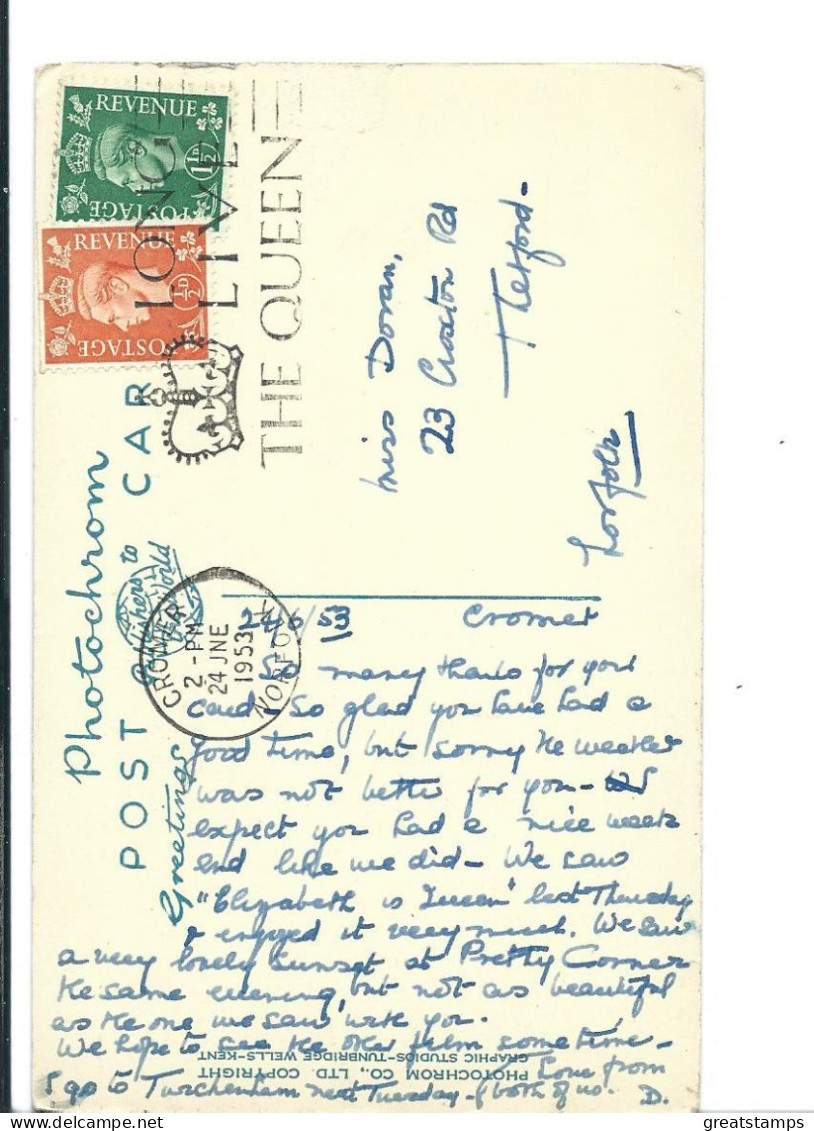 REVENUE
1½D
POSTAGE
REVENUE
½D
POSTAGE
LONG
LIVE
THE QUEEN
Photochrom
POST CAR
Publishers to
the World
Greetings
CROMER
2 - PM
24 JNE
1953
NORFOLK
Miss Doran,
23 Croxton Rd
Thetford-
Norfolk
24/6/53 Cromer
So many thanks for your
card - So glad you have had a
good time, but sorry the weather
was not better for you -
expect you had a nice week
end like we did - We saw
"Elizabeth is Queen" last Thursday
& enjoyed it very much. We saw
a very lovely sunset at Pretty Corner
the same evening, but not as beautiful
as the one we saw with you.
We hope to see the other film sometime -
Love from
I go to Twickenham next Tuesday - both of us. D.
PHOTOCHROM CO., LTD. COPYRIGHT
GRAPHIC STUDIOS-TUNBRIDGE WELLS-KENT
greatstamps